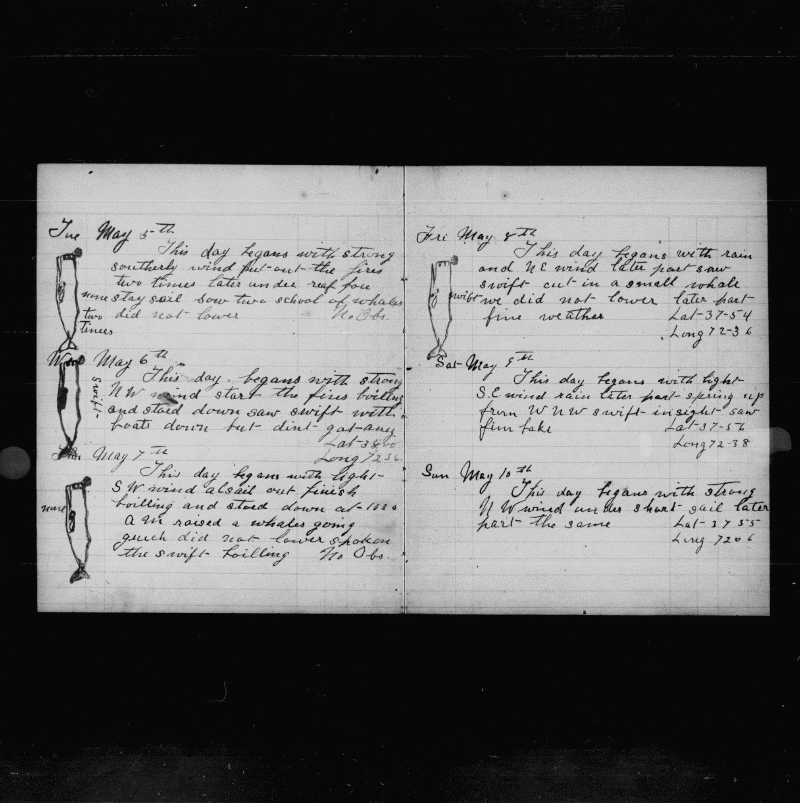 Tue May 5th
This day begans with strong
southerly wind put out the fires
two times later under reaf foe
none stay sail sow two school of whales
two did not lower No Obs.
times
W May 6th
This day begans with strong
NW wind start the fires boiling
swift and stoed down saw swift with
boats down but dint got any
Lat 38 00
Long 72 36
May 7th
This day begans with light
S W wind alsail out finish
none boilling and stoed down at 1030
A M raised a whales going
quick did not lower spoken
the swift boilling No Obs.
Fri May 8th
This day begans with rain
and N E wind later part saw
swift cut in a small whale
swift we did not lower later part
fine weather Lat 37-54
Long 72-36
Sat May 9th
This day begans with light
S.E wind rain leter part spring up
from W N W swift insight saw
finn bake Lat 37-56
Long 72-38
Sun May 10th
This day begans with strong
N W wind under short sail later
part the same Lat 37 55
Long 7206